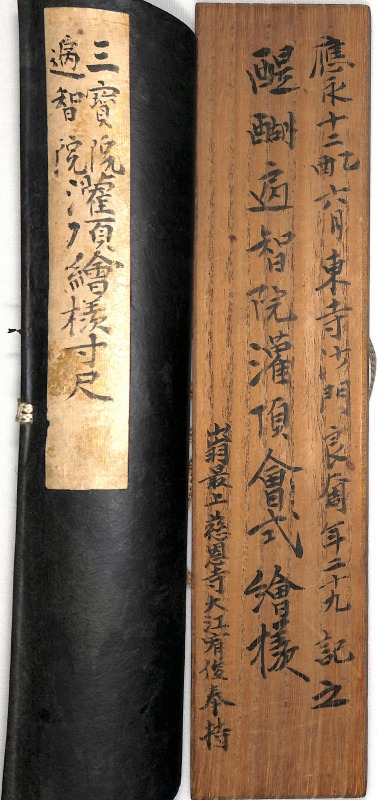 應永十二乙酉六月東寺沙門良年二十九記之
醍醐遍智院灌頂會式繪樣
出羽最上慈恩寺大江宥俊奉持
三寳院
遍智院
灌頂繪樣寸尺